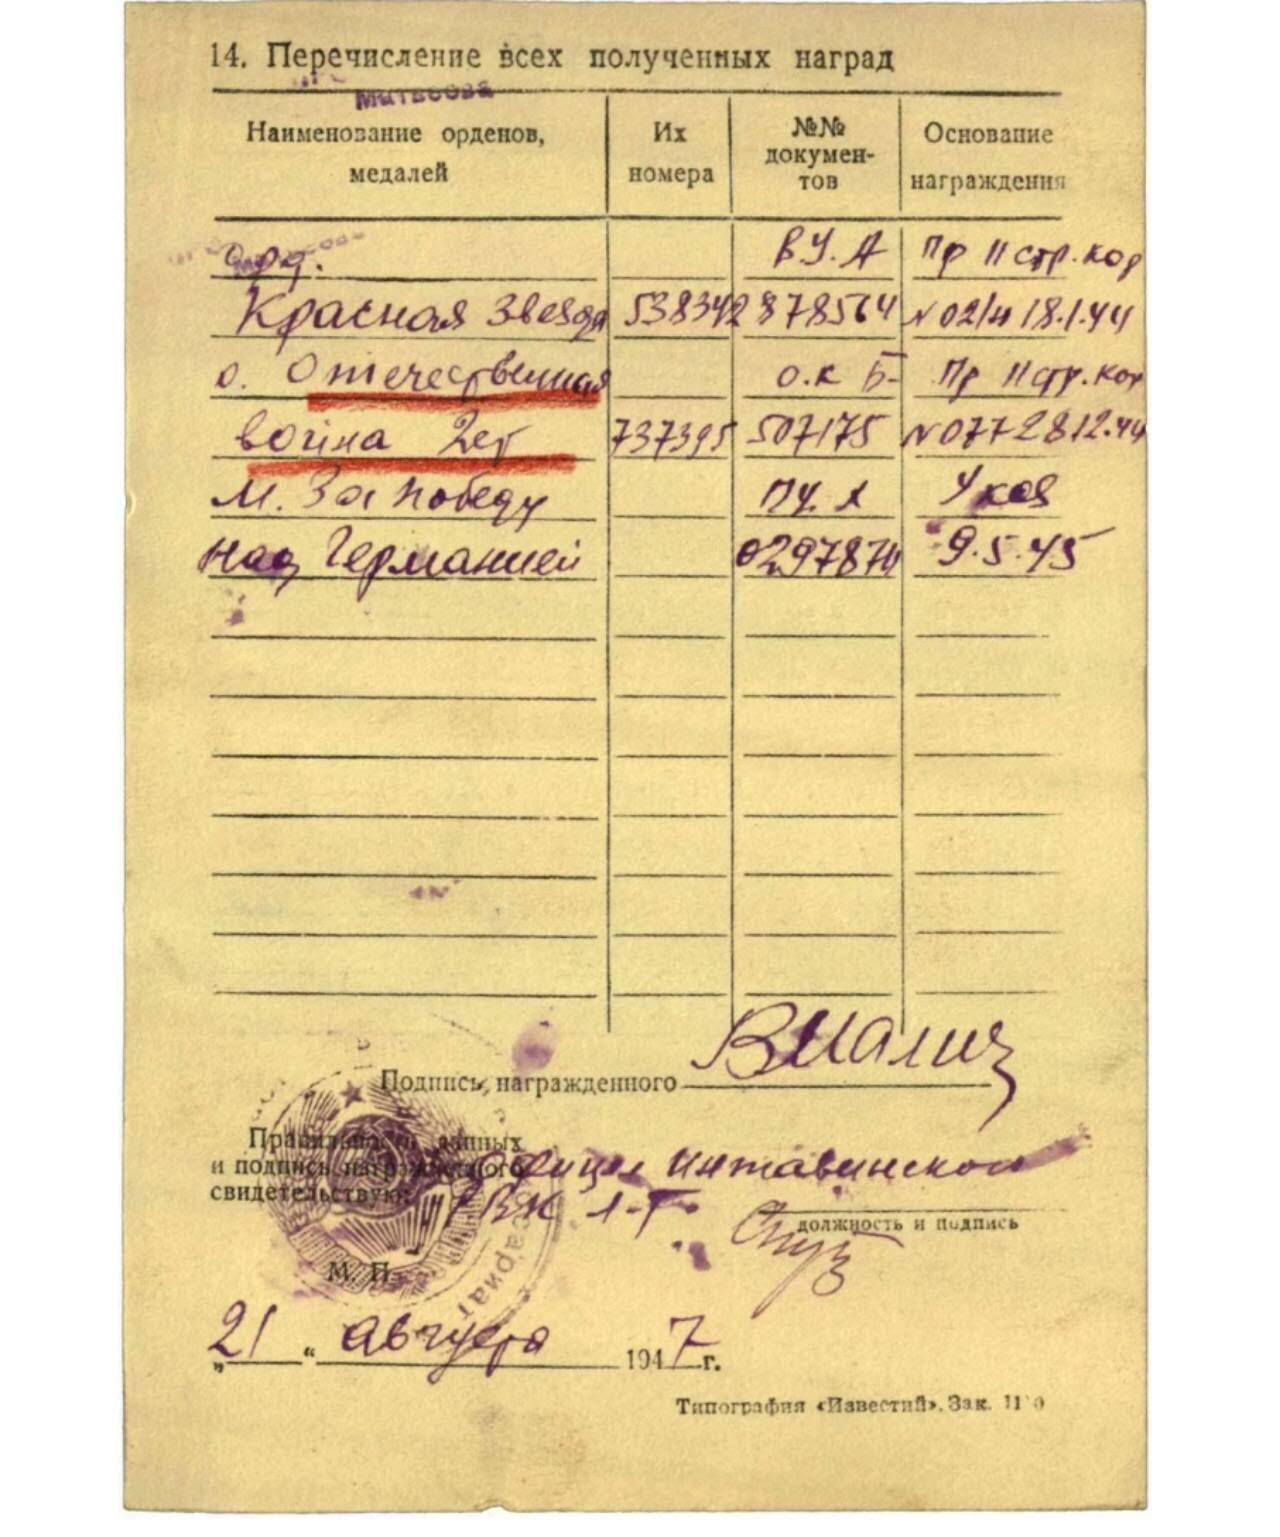 14. Перечисление всех полученных наград
Наименование орденов, медалей Их номера №№ докумен-тов Основание награждения
орд. В.У.А Пр 11 стр. кор
Красная Звезда 538342 878564 18.1.44
о. Отечественная о.к Б- Пр 11 стр. кор
война 2ст 737395 507175 N 077 28.12.44
М. За победу Указ
над Германией 0297874 9.5.45
Подпись награжденного
Правильность данных
и подпись награжденного
свидетельствую:
РВК
должность и подпись
М. П.
„21“ августа 1947 г.
Типография «Известий». Зак.